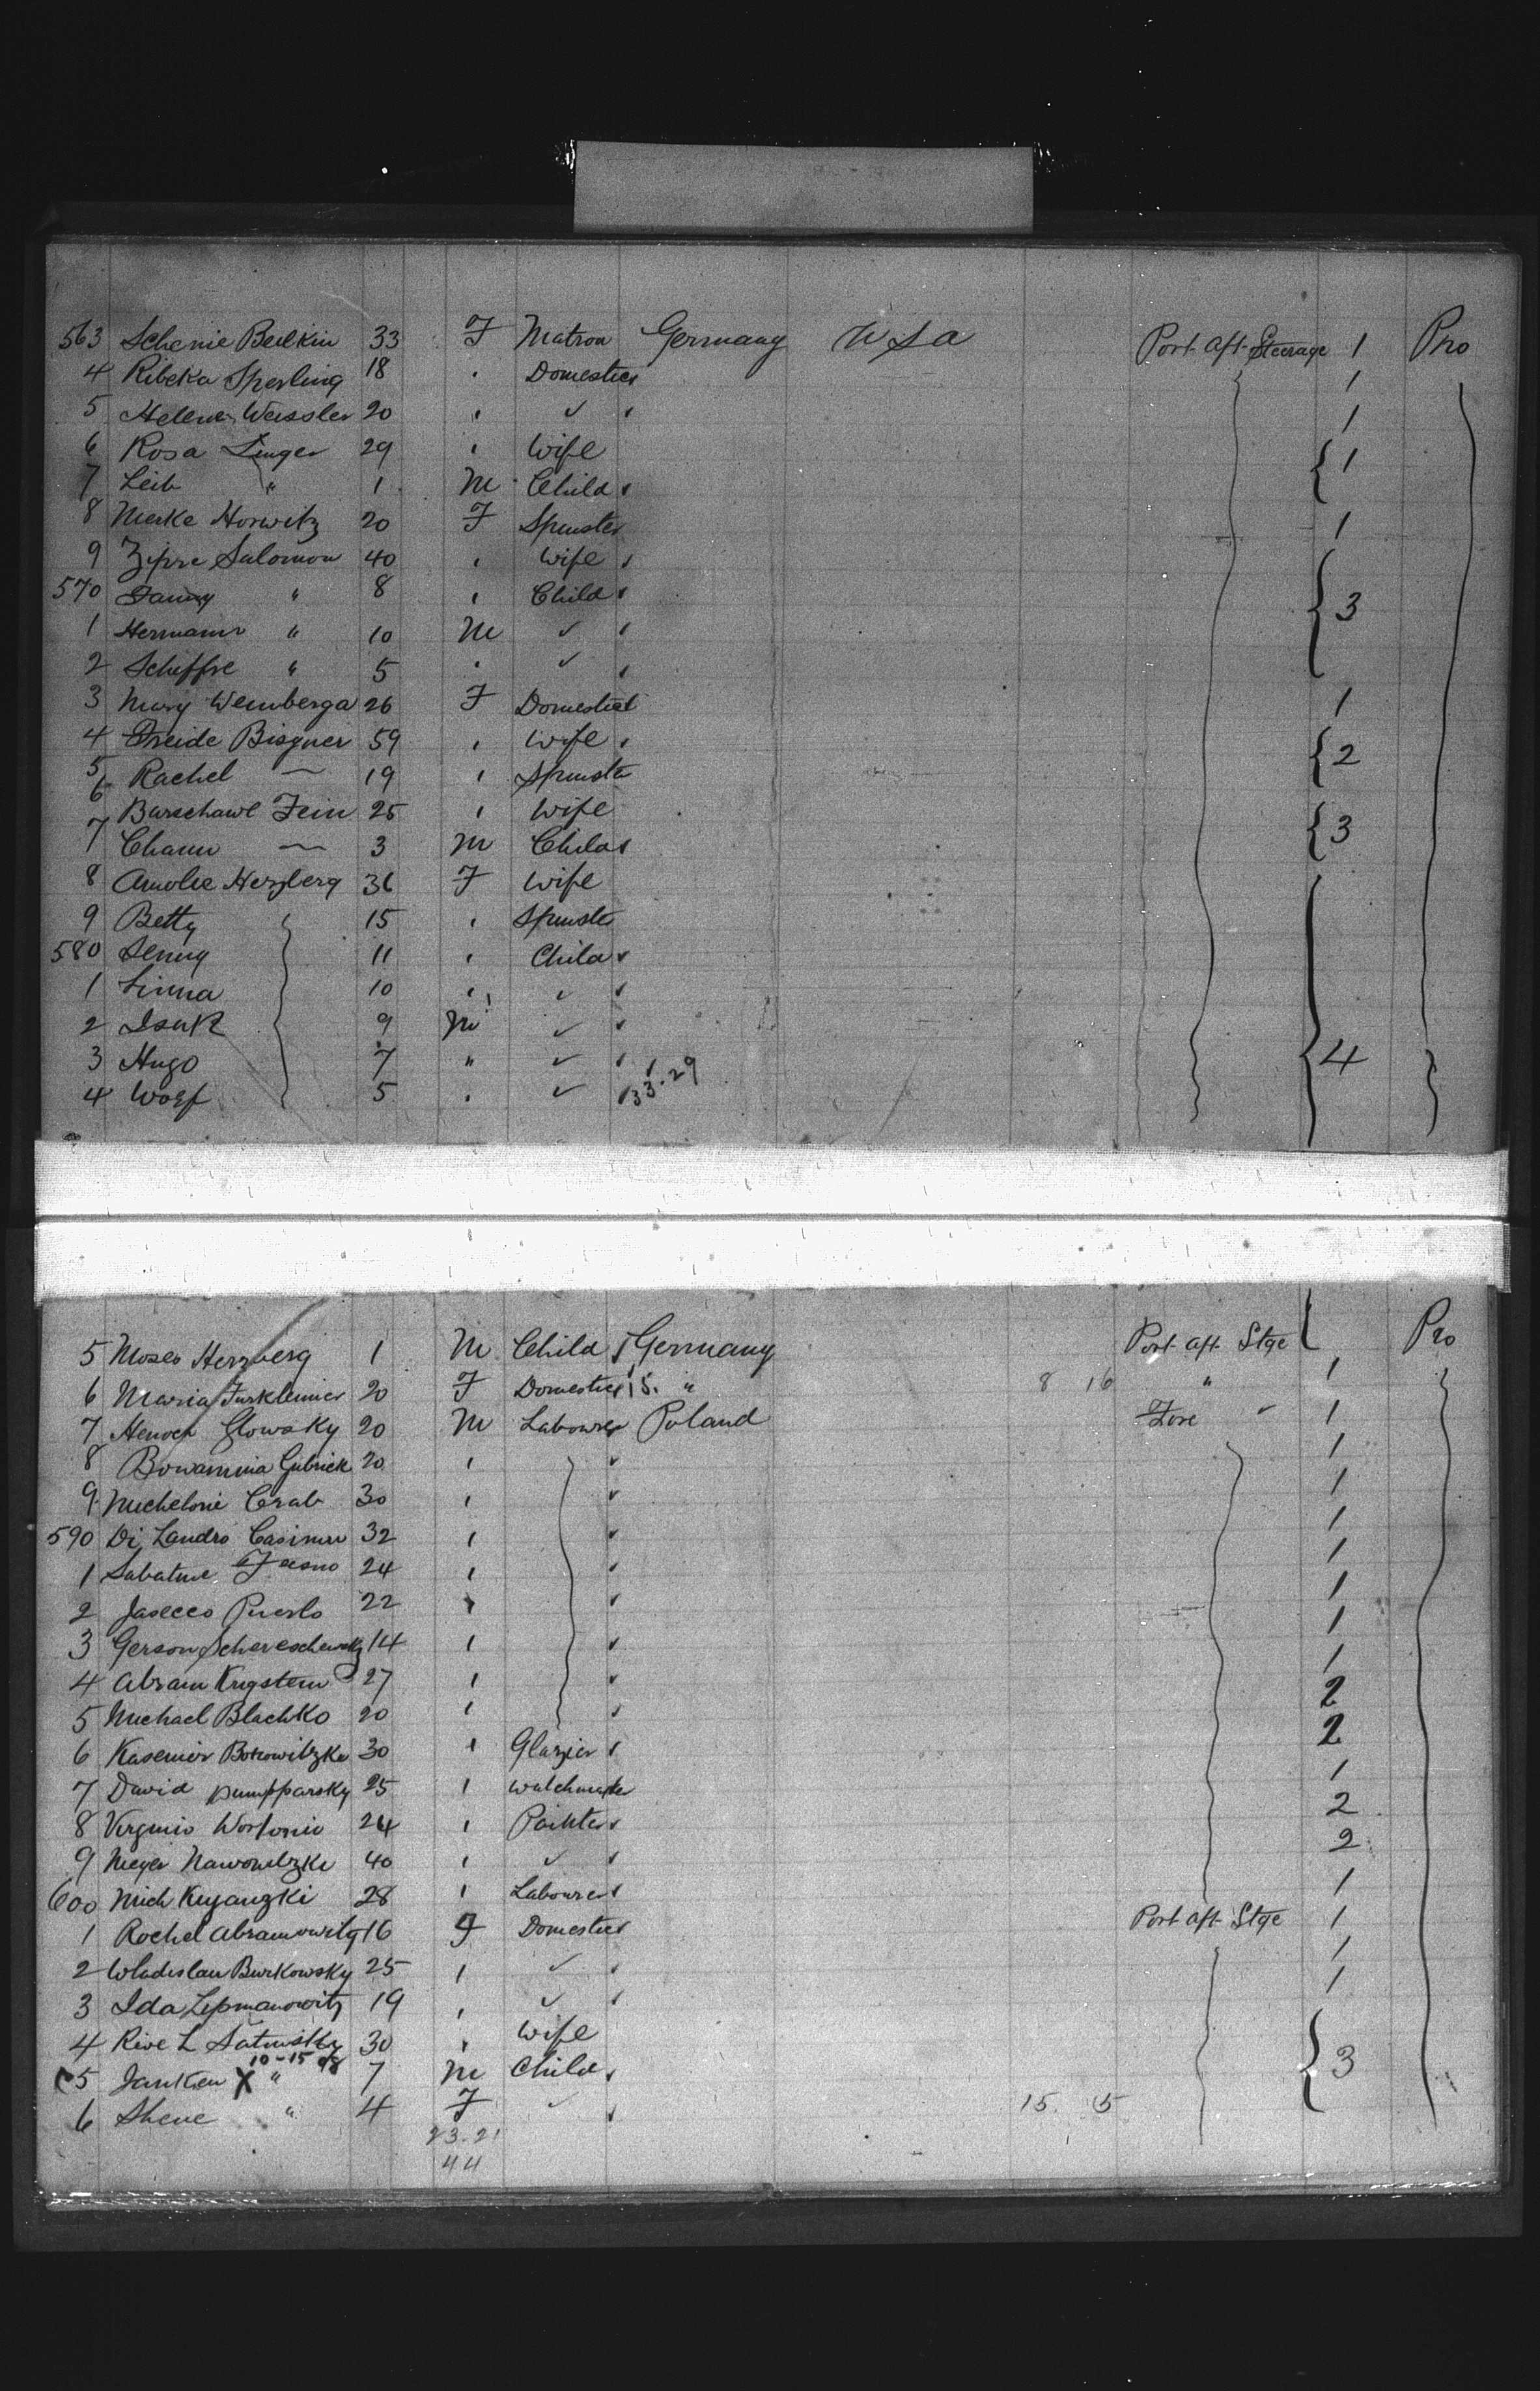 563 Schenie Beilkin 33 F Matron Germany USA Port Aft Steerage 1 Pro
4 Ribeka Sperling 18 Domestic 1
5 Helene Wessler 20 ✓ 1
6 Rosa Singer 29 Wife { 1
7 Leib " 1 M Child
8 Merke Horwitz 20 F Spinster 1
9 Zipre Salomon 40 Wife
570 Fanny " 8 Child { 3
1 Hermann " 10 M ✓
2 Schiffre " 5 ✓
3 Mary Wemberga 26 F Domestic 1
4 Freide Bisgner 59 Wife { 2
5 Rachel — 19 Spinster
6 Barschawe Fein 25 Wife { 3
7 Chaim — 3 M Child
8 Amolie Herzberg 36 F Wife
9 Betty 15 Spinster
580 Jenny 11 Child
1 Linna 10 ✓
2 Isak 9 M ✓
3 Hugo 7 " ✓ { 4
4 Wolf 5 ✓ 33.29
5 Moses Herzberg 1 M Child Germany Port Aft Stge Pro
6 Maria Turklemies 20 F Domestic 15. " 8 16 " 1
7 Henoch Glowsky 20 M Labourer Poland Fore ✓ 1
8 Bowamina Gubrick 20 1
9 Michelorie Crab 30 1
590 Di Landro Casimir 32 1
1 Sabatine 24 1
2 Jasecco Puerlo 22 1
3 Gerson Schereschewsky 14 1
4 Abram Krigstein 27 1
5 Michael Blachko 20 2
6 Kasemier Botrowitzke 30 Glazier 2
7 David Pumpparsky 25 Watchmaker 1
8 Virginio Worfonio 24 Painter 2
9 Meyer Nawowitzki 40 ✓ 2
600 Mich Kuyanzki 28 Labourer 1
1 Rochel Abramowitz 16 F Domestic Port Aft Stge 1
2 Wladislau Burkowsky 25 ✓ 1
3 Ida Lipmanowitz 19 ✓ 1
4 Rive L 30 Wife { 3
10-15
5 Janken X " 7 M Child
6 Shene " 4 F ✓ 15. 5
23.21
44